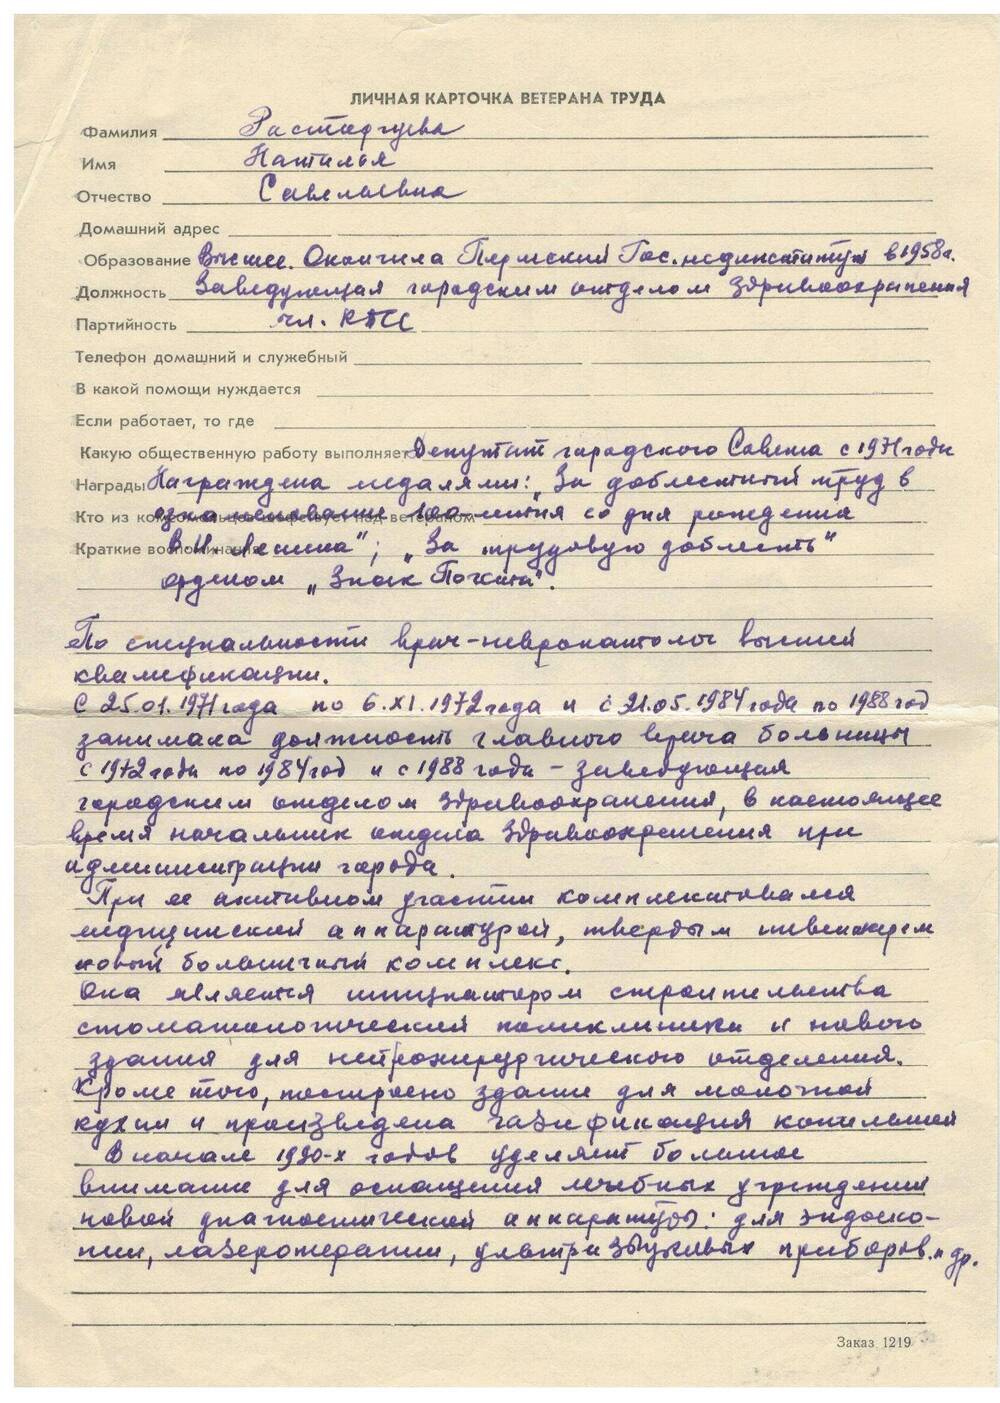 ЛИЧНАЯ КАРТОЧКА ВЕТЕРАНА ТРУДА
Фамилия Расторгуева
Имя Наталья
Отчество Савельевна
Домашний адрес
Образование Высшее. Окончила Пермский Гос. мединститут в 1958 г.
Должность Заведующая городским отделом здравоохранения
Партийность чл. КПСС
Телефон домашний и служебный
В какой помощи нуждается
Если работает, то где
Какую общественную работу выполняет Депутат городского Совета с 1971 года
Награды Награждена медалями: „За доблестный труд в
Кто из комсомольцев шефствует над ветераном ознаменование 100-летия со дня рождения
Краткие воспоминания В.И. Ленина"; „За трудовую доблесть"
орденом „Знак Почета".
По специальности врач-невропатолог высшей
квалификации.
С 25.01.1971 года по 6.XI.1972 года и с 21.05.1984 года по 1988 год
занимала должность главного врача больницы
с 1972 года по 1984 год и с 1988 года – заведующая
городским отделом здравоохранения, в настоящее
время начальник отдела здравоохранения при
администрации города.
При ее активном участии комплектовался
медицинской аппаратурой, твердым инвентарем
новый больничный комплекс.
Она является инициатором строительства
стоматологической поликлиники и нового
здания для нейрохирургического отделения.
Кроме того, построено здание для молочной
кухни и произведена газификация котельной
В начале 1990-х годов уделяет большое
внимание для оснащения лечебных учреждений
новой диагностической аппаратуры: для эндоско-
пии, лазеротерапии, ультразвуковых приборов и др.
Заказ 1219